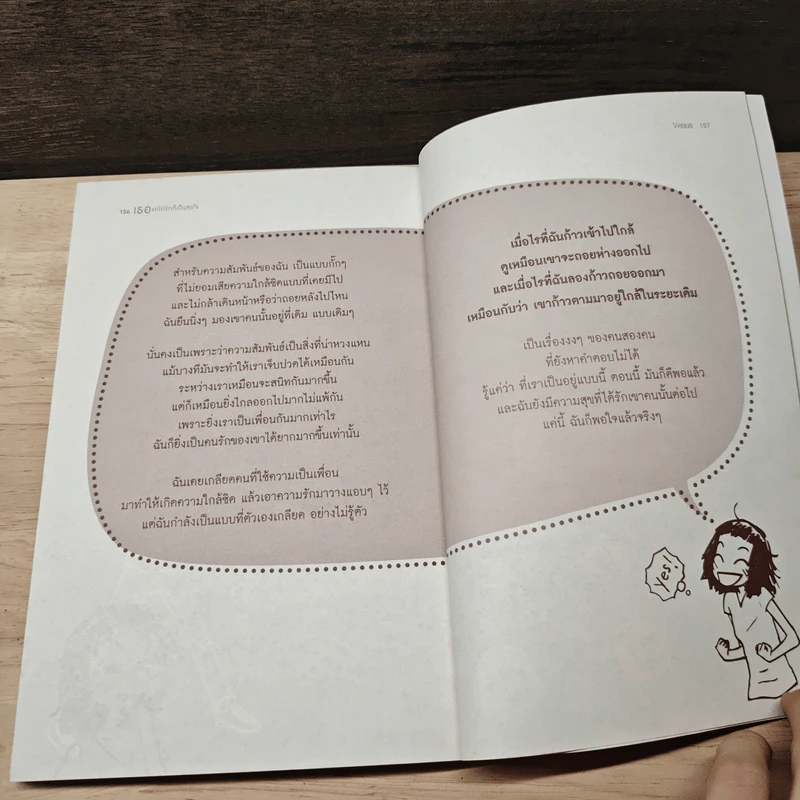 156 เธอ
สำหรับความสัมพันธ์ของฉัน เป็นแบบกั๊กๆ
ที่ไม่ยอมเสียความใกล้ชิดแบบที่เคยมีไป
และไม่กล้าเดินหน้าหรือว่าถอยหลังไปไหน
ฉันยืนนิ่งๆ มองเขาคนนั้นอยู่ที่เดิม แบบเดิมๆ
นั่นคงเป็นเพราะว่าความสัมพันธ์เป็นสิ่งที่น่าหวงแหน
แม้บางทีมันจะทำให้เราเจ็บปวดได้เหมือนกัน
ระหว่างเราเหมือนจะสนิทกันมากขึ้น
แต่ก็เหมือนยิ่งไกลออกไปมากไม่แพ้กัน
เพราะยิ่งเราเป็นเพื่อนกันมากเท่าไร
ฉันก็ยิ่งเป็นคนรักของเขาได้ยากมากขึ้นเท่านั้น
ฉันเคยเกลียดคนที่ใช้ความเป็นเพื่อน
มาทำให้เกิดความใกล้ชิด แล้วเอาความรักมาวางแอบๆ ไว้
แต่ฉันกำลังเป็นแบบที่ตัวเองเกลียด อย่างไม่รู้ตัว
Venus 157
เมื่อไรที่ฉันก้าวเข้าไปใกล้
ดูเหมือนเขาจะถอยห่างออกไป
และเมื่อไรที่ฉันลองก้าวถอยออกมา
เหมือนกับว่า เขาก้าวตามมาอยู่ใกล้ในระยะเดิม
เป็นเรื่องงงๆ ของคนสองคน
ที่ยังหาคำตอบไม่ได้
รู้แค่ว่า ที่เราเป็นอยู่แบบนี้ ตอนนี้ มันก็ดีพอแล้ว
และฉันยังมีความสุขที่ได้รักเขาคนนั้นต่อไป
แค่นี้ ฉันก็พอใจแล้วจริงๆ
yes!